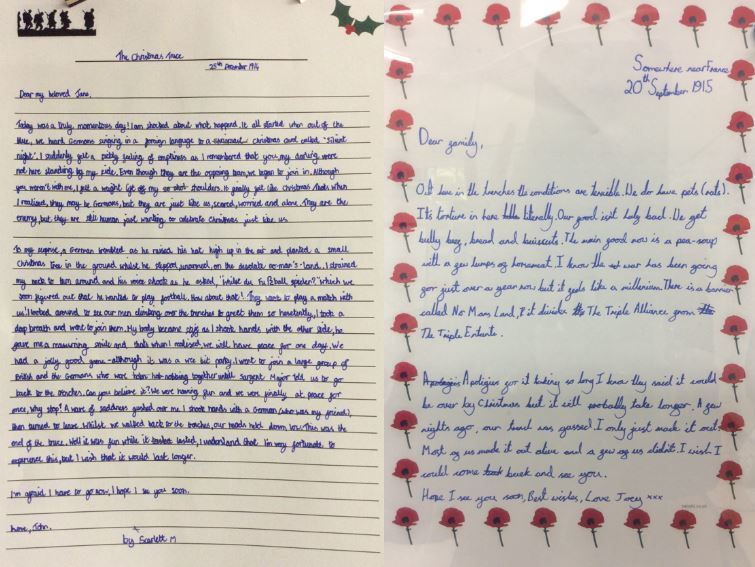 The Christmas Truce
25th December 1914
Dear my beloved Jane,
Today was a truly momentous day! I am shocked about what happend. It all started when out of the
blue, we heard Germans singing in a foreign language to a christmas carol called "Silent
night". I suddenly got a pitty feeling of emptiness as I remembered that you, my darling, were
not here standing by my side. Even though they are the opposing team, we began to join in. Although
you weren't with me, I felt a weight lift off my shoulders. It really felt like christmas. That's when
I realised, they may be Germans, but they are just like us, scared, worried and alone. They are the
enemy but they are still human just wanting to celebrate Christmas just like us.
To my suprise, a German trembled as he raised his hat high up in the air and planted a small
Christmas tree in the ground whilst he stepped, unarmed, on the desolate no-man's-land. I strained
my neck to turn around and his voice shouts as he asked, "whilst du Fußball spielen?" which we
soon figured out that he wanted to play football. How about that! They want to play a match with
us! I looked around to see our men climbing over the trenches to greet them so hesitantly, I took a
deep breath and went to join them. My body became stiff as I shook hands with the other side, he
gave me a reassuring smile and thats when I realised we will have peace for one day. We
had a jolly good game - although it was a wee bit party. I went to join a large group of
British and the Germans who were hob-nobbing together until Sargent Major told us to go
back to the trenches. Can you believe it? We were having fun and we were finally at peace for
once, why stop? A wave of saddness gushed over me. I shook hands with a German (who was my friend),
then turned to leave. Whilst we walked back to the trenches, our heads held down low. This was the
end of the truce. Well it was fun while it lasted, I understand that I'm very fortunate to
experience this, but I wish that it would last longer.
I'm afraid I have to go now, I hope I see you soon.
Love, John.
by Scarlett M
Somewhere near France
20th September 1915
Dear family,
Out here in the trenches the conditions are terrible. We do have pets (rats).
It's torture in here literally. Our food isnt holy bad. We get
bully beef, bread and buiscuits. The main food now is a pea-soup
with a few lumps of horsemeat. I know the war has been going
for just over a year now but it feels like a millenium. There is a barrier
called No Mans Land, it divides The Triple Alliance from
The Triple Entente.
Apoligies for it taking so long I know they said it would
be over by Christmas but it will probably take longer. A few
nights ago, our trench was gassed. I only just made it out.
Most of us made it out alive and a few of us didn't. I wish I
could come back and see you.
Hope I see you soon, Best wishes, Love Joey xxx